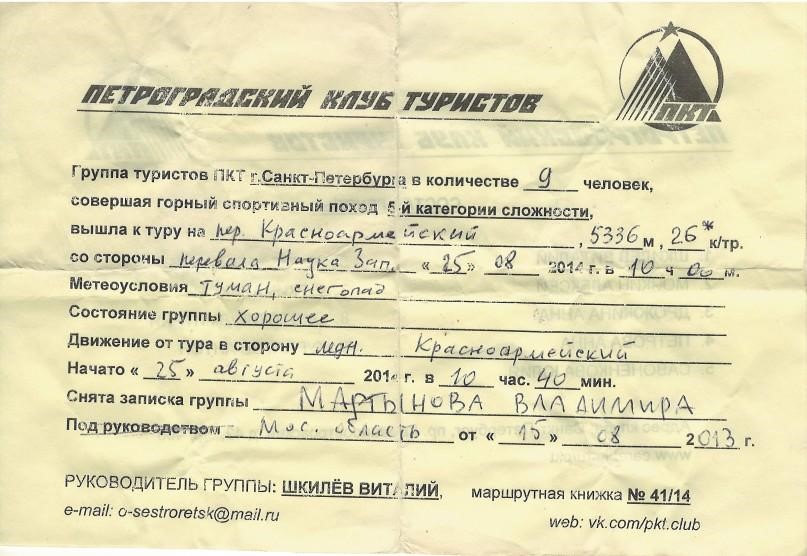 ПЕТРОГРАДСКИЙ КЛУБ ТУРИСТОВ
ПКТ
Группа туристов ПКТ г.Санкт-Петербурга в количестве 9 человек,
совершая горный спортивный поход 5-й категории сложности,
вышла к туру на пер. Красноармейский, 5336 м, 2б* к/тр.
со стороны перевала Наука Зап. «25» 08 2014 г. в 10 ч 00 м.
Метеоусловия туман, снегопад
Состояние группы хорошее
Движение от тура в сторону ледн. Красноармейский
Начато «25» августа 2014 г. в 10 час. 40 мин.
Снята записка группы МАРТЫНОВА ВЛАДИМИРА
Под руководством Мос. область от «15» 08 2013 г.
РУКОВОДИТЕЛЬ ГРУППЫ: ШКИЛЁВ ВИТАЛИЙ, маршрутная книжка № 41/14
e-mail: o-sestroretsk@mail.ru web: vk.com/pkt.club